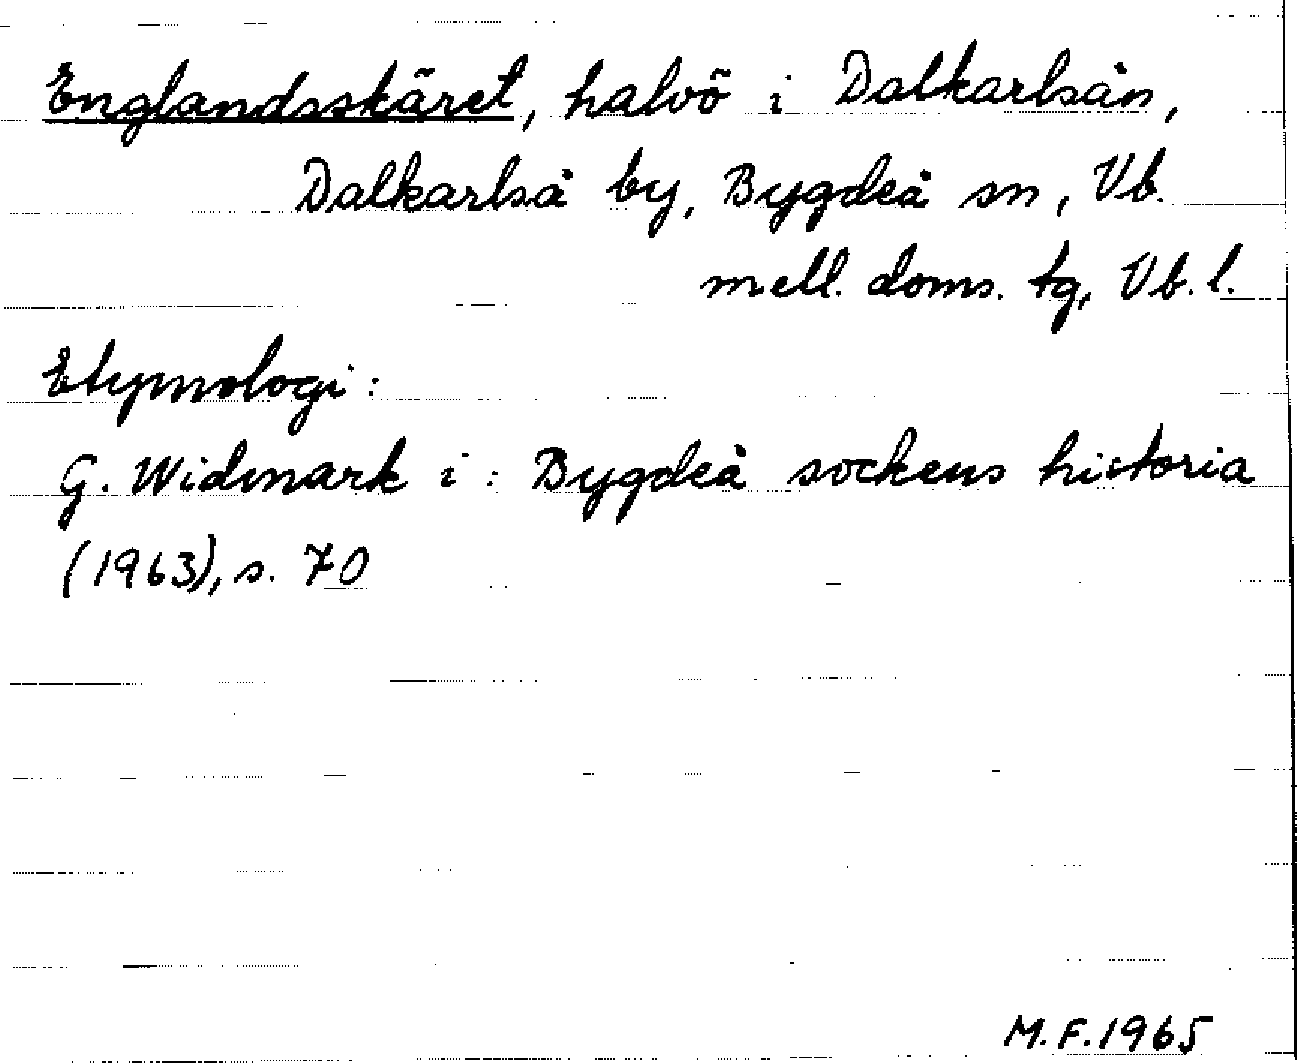 Englandsskäret, halvö i Dalkarlsån,
Dalkarlså by, Bygdeå sn, Vb.
mell. doms. tg, Vb. l.
Etymologi:
G. Widmark i: Bygdeå sockens historia
(1963), s. 70
M.F.1965